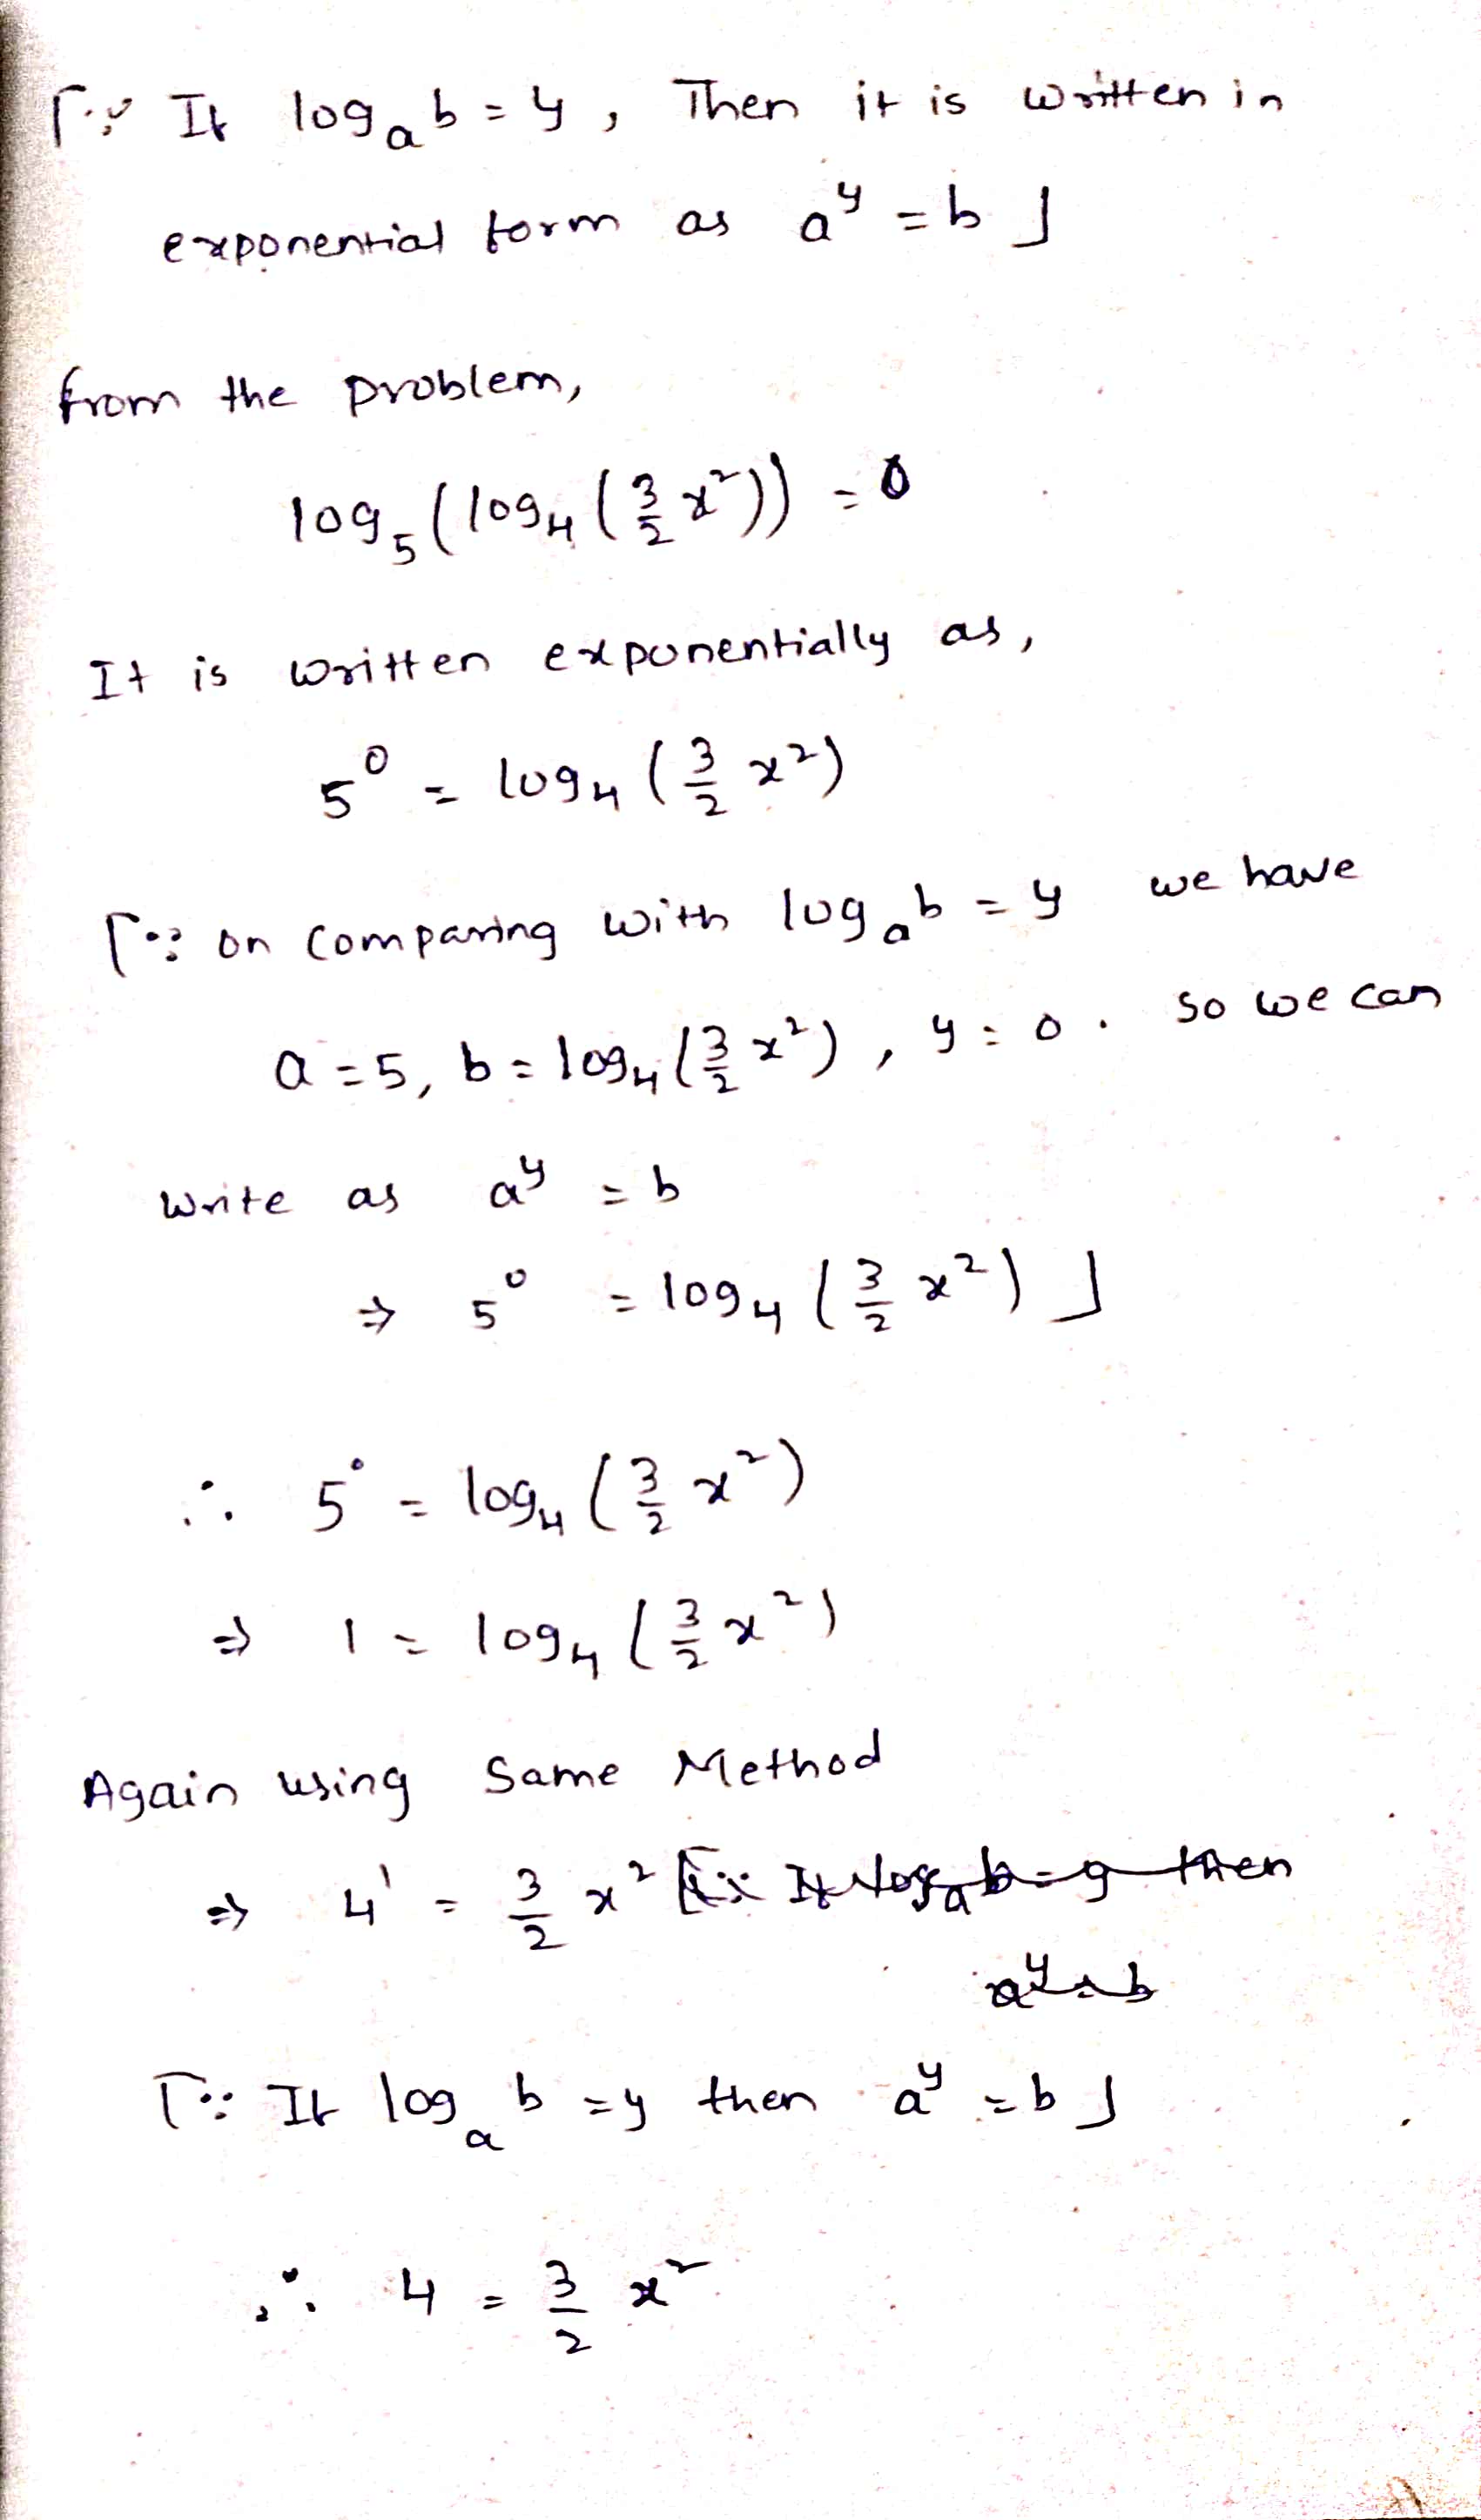 [∵ If log_a b = y, Then it is written in
exponential form as a^y = b ]
from the problem,
log_5 (log_4 (3/2 x²)) = 0
It is written exponentially as,
5^0 = log_4 (3/2 x²)
[∵ on comparing with log_a b = y we have
a = 5, b = log_4 (3/2 x²), y = 0. so we can
write as a^y = b
⇒ 5^0 = log_4 (3/2 x²) ]
∴ 5^0 = log_4 (3/2 x²)
⇒ 1 = log_4 (3/2 x²)
Again using Same Method
⇒ 4^1 = 3/2 x² [∵ If log_a b = y then
a^y = b
[∵ If log_a b = y then a^y = b ]
∴ 4 = 3/2 x²